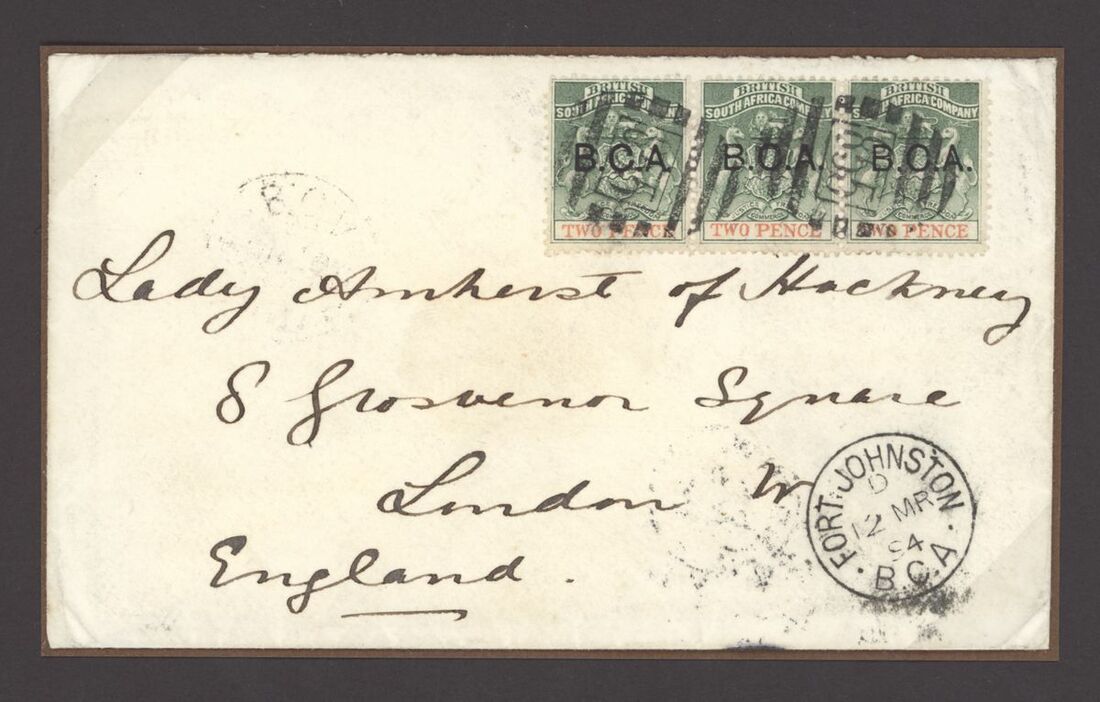 BRITISH BRITISH BRITISH
SOUTH AFRICA COMPANY SOUTH AFRICA COMPANY AFRICA COMPANY
B.C.A. B.C.A. B.C.A.
COMMERCE
TWO PENCE TWO PENCE TWO PENCE
Lady Amherst of Hackney
8 Grosvenor Square
London W
England.
FORT JOHNSTON
D
12 MR
94
B.C.A.